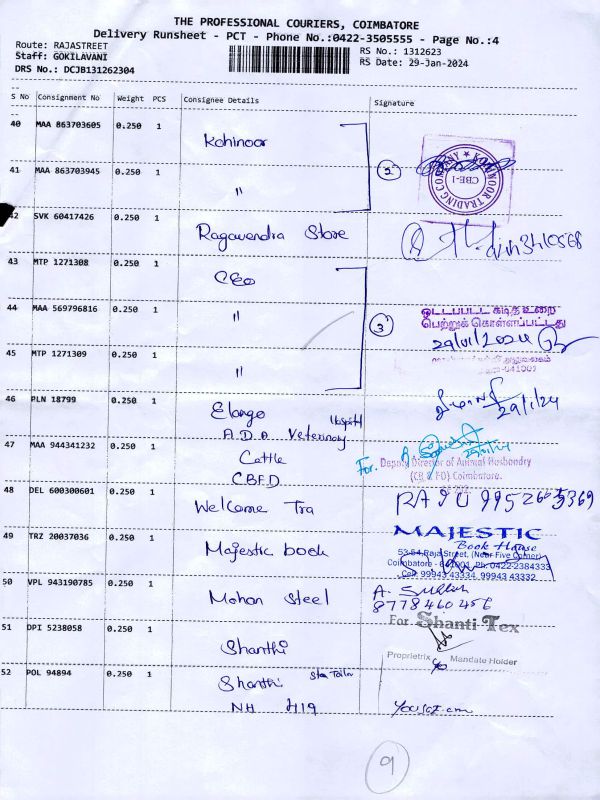 THE PROFESSIONAL COURIERS, COIMBATORE
Delivery Runsheet - PCT - Phone No.:0422-3505555 - Page No.:4
Route: RAJASTREET
Staff: GOKILAVANI
RS No.: 1312623
RS Date: 29-Jan-2024
DRS No.: DCJB131262304
S No Consignment No Weight PCS Consignee Details Signature
40 MAA 863703605 0.250 1 Kohinoor
41 MAA 863703945 0.250 1 "
2
CBE-1
42 SVK 60417426 0.250 1 Ragavendra Store
43 MTP 1271308 0.250 1 CEO
44 MAA 569796816 0.250 1 "
3
ஒட்டப்பட்ட கடித உறை
பெற்றுக் கொள்ளப்பட்டது
29/01/2024
45 MTP 1271309 0.250 1 "
46 PLN 18799 0.250 1 Elango Hospital
29/1/24
A.D.A Veterinary
47 MAA 944341232 0.250 1 Cattle
For. Deputy Director of Animal Husbandry
(CB & FD) Coimbatore.
CBFD
48 DEL 600300601 0.250 1 Welcome Tra
RAJU 9952605369
49 TRZ 20037036 0.250 1 Majestic book
MAJESTIC
Book House
53-54, Raja Street, (Near Five Corner)
Coimbatore - 641001. Ph: 0422-2384333
Cell: 99943 43334, 99943 43332
50 VPL 943190785 0.250 1 Mohan Steel
8778460456
51 DPI 5238058 0.250 1 Shanthi
For Shanti Tex
Proprietrix Mandate Holder
52 POL 94894 0.250 1 Shanthi Star Tailor
NH 419
9